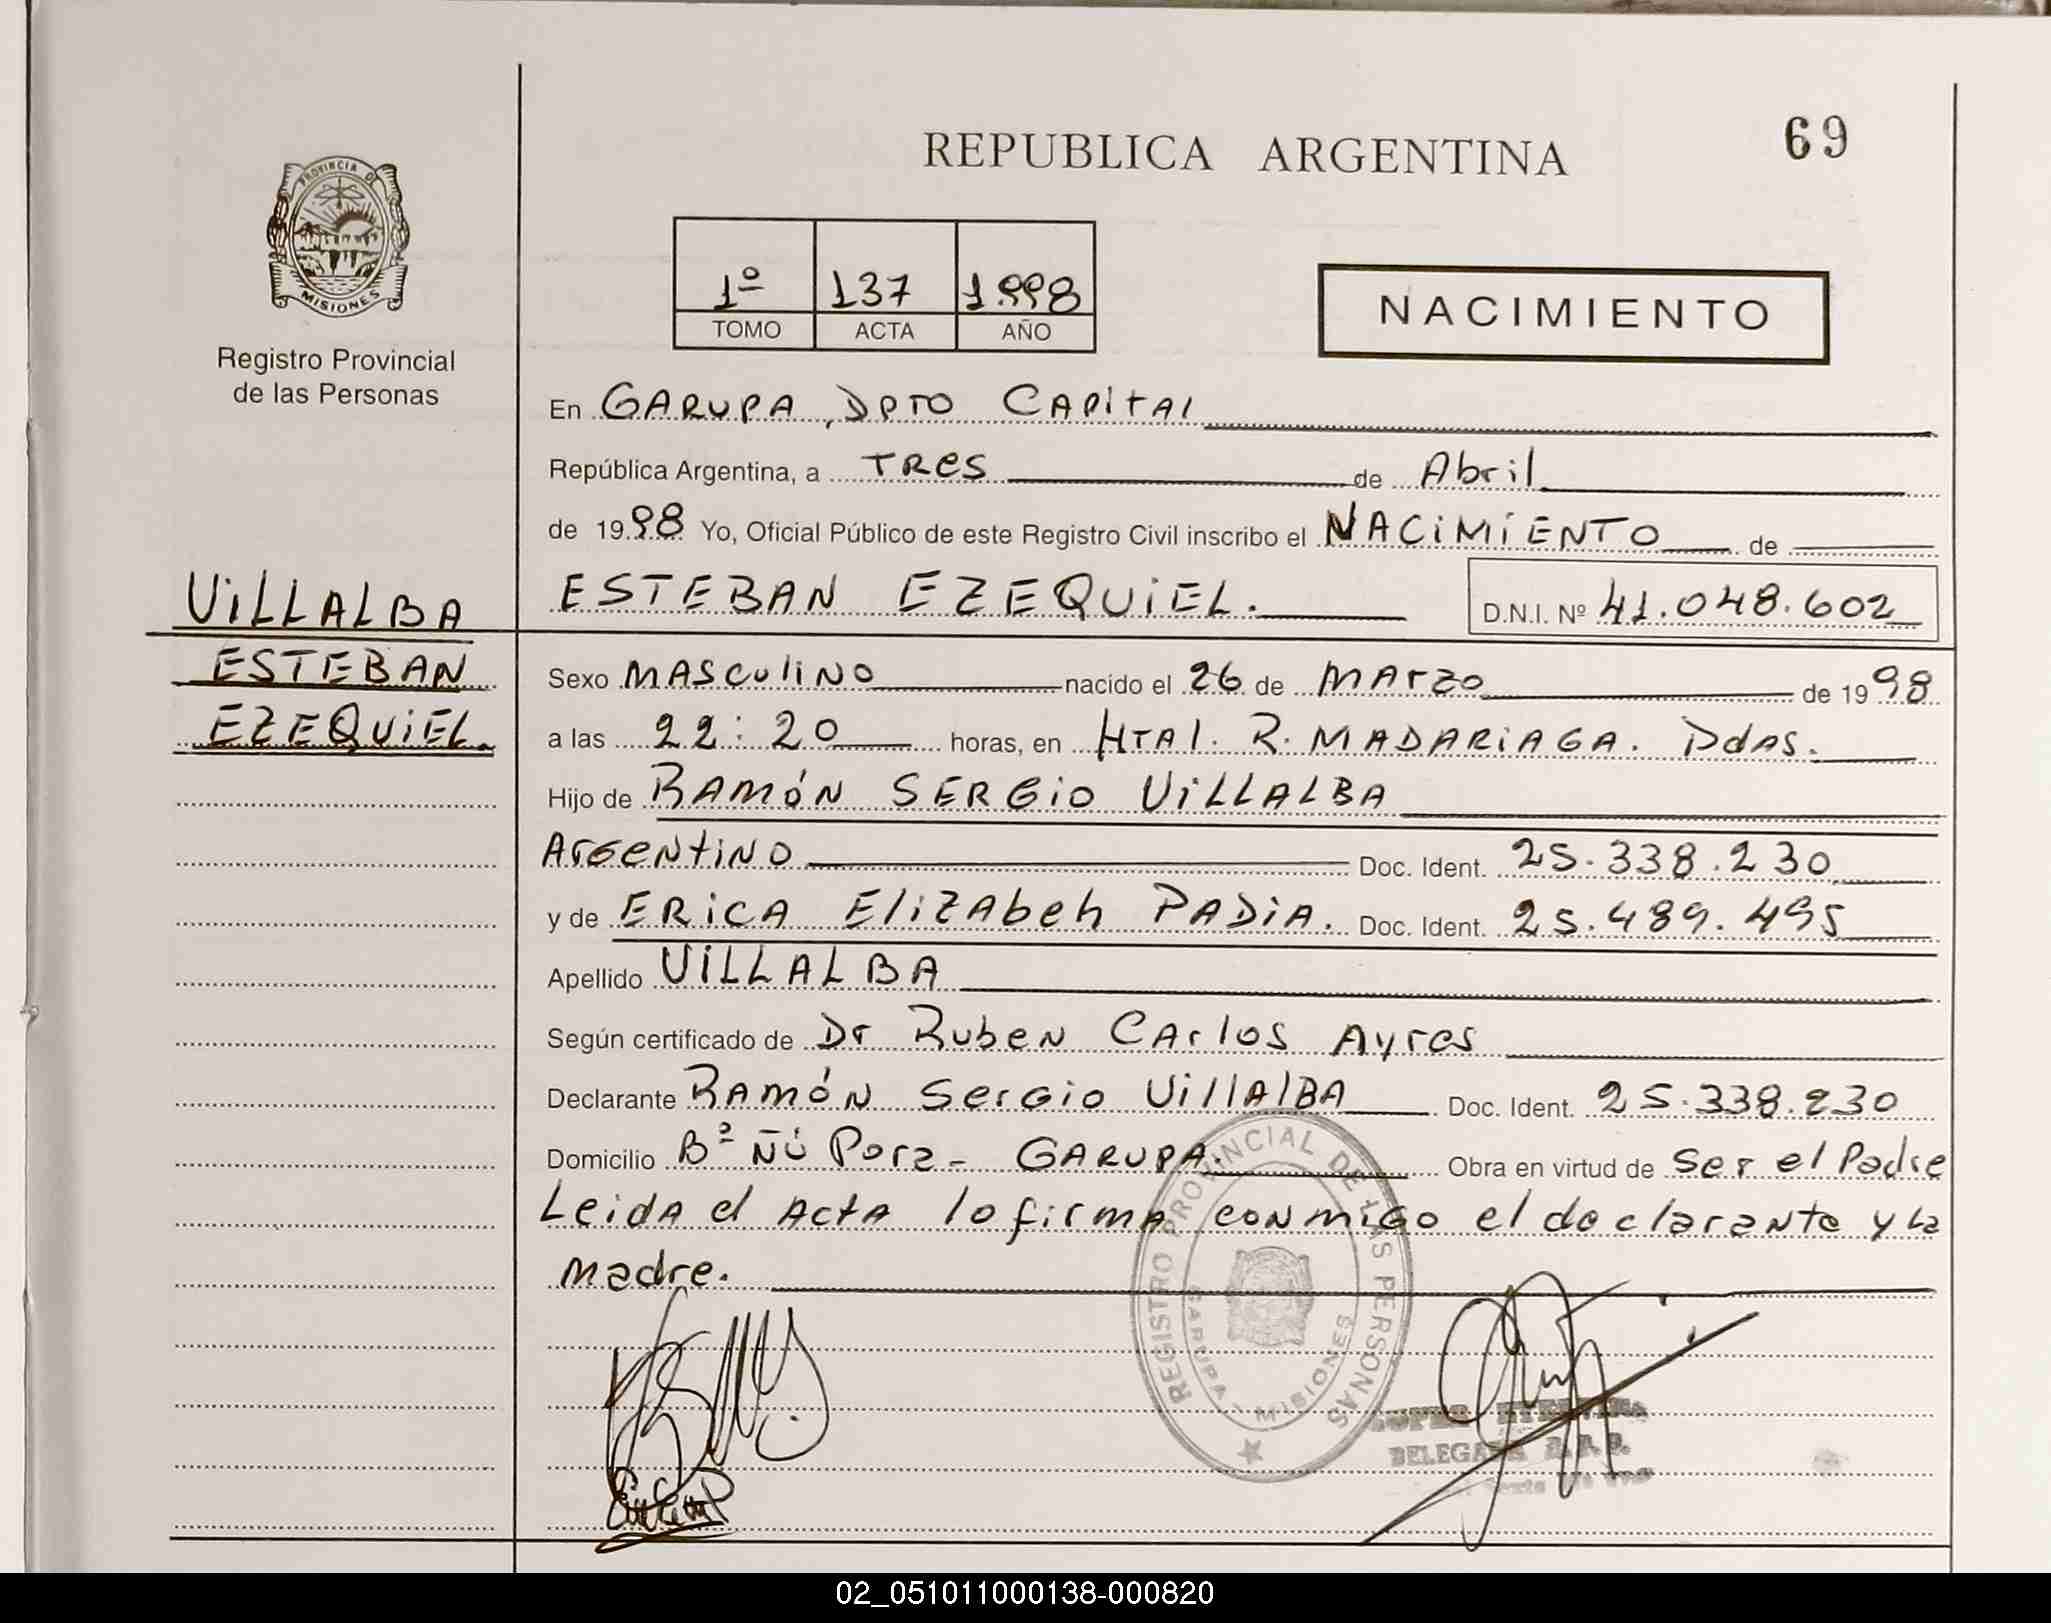 REPUBLICA ARGENTINA
69
PROVINCIA D
MISIONES
Registro Provincial
de las Personas
1º 137 1.998
TOMO ACTA AÑO
NACIMIENTO
En GARUPA, DPTO CAPITAL
República Argentina, a TRES de Abril
de 1998 Yo, Oficial Público de este Registro Civil inscribo el NACIMIENTO de
VILLALBA
ESTEBAN
EZEQUIEL.
ESTEBAN EZEQUIEL. D.N.I. Nº 41.048.602
Sexo MASCULINO nacido el 26 de MARZO de 1998
a las 22:20 horas, en HTAL. R. MADARIAGA. PdAS.
Hijo de RAMÓN SERGIO VILLALBA
Argentino Doc. Ident. 25.338.230
y de ERICA ElizAbeh PADIA. Doc. Ident. 25.489.495
Apellido VILLALBA
Según certificado de Dr Ruben Carlos Ayres
Declarante RAMÓN Sergio VillAlBA Doc. Ident. 25.338.230
Domicilio Bº ÑÚ Porz - GARUPA. Obra en virtud de Ser el Padre
Leida el ActA lo firma conmigo el declarante y la
madre.
REGISTRO PROVINCIAL DE LAS PERSONAS
GARUPA - MISIONES
02_051011000138-000820